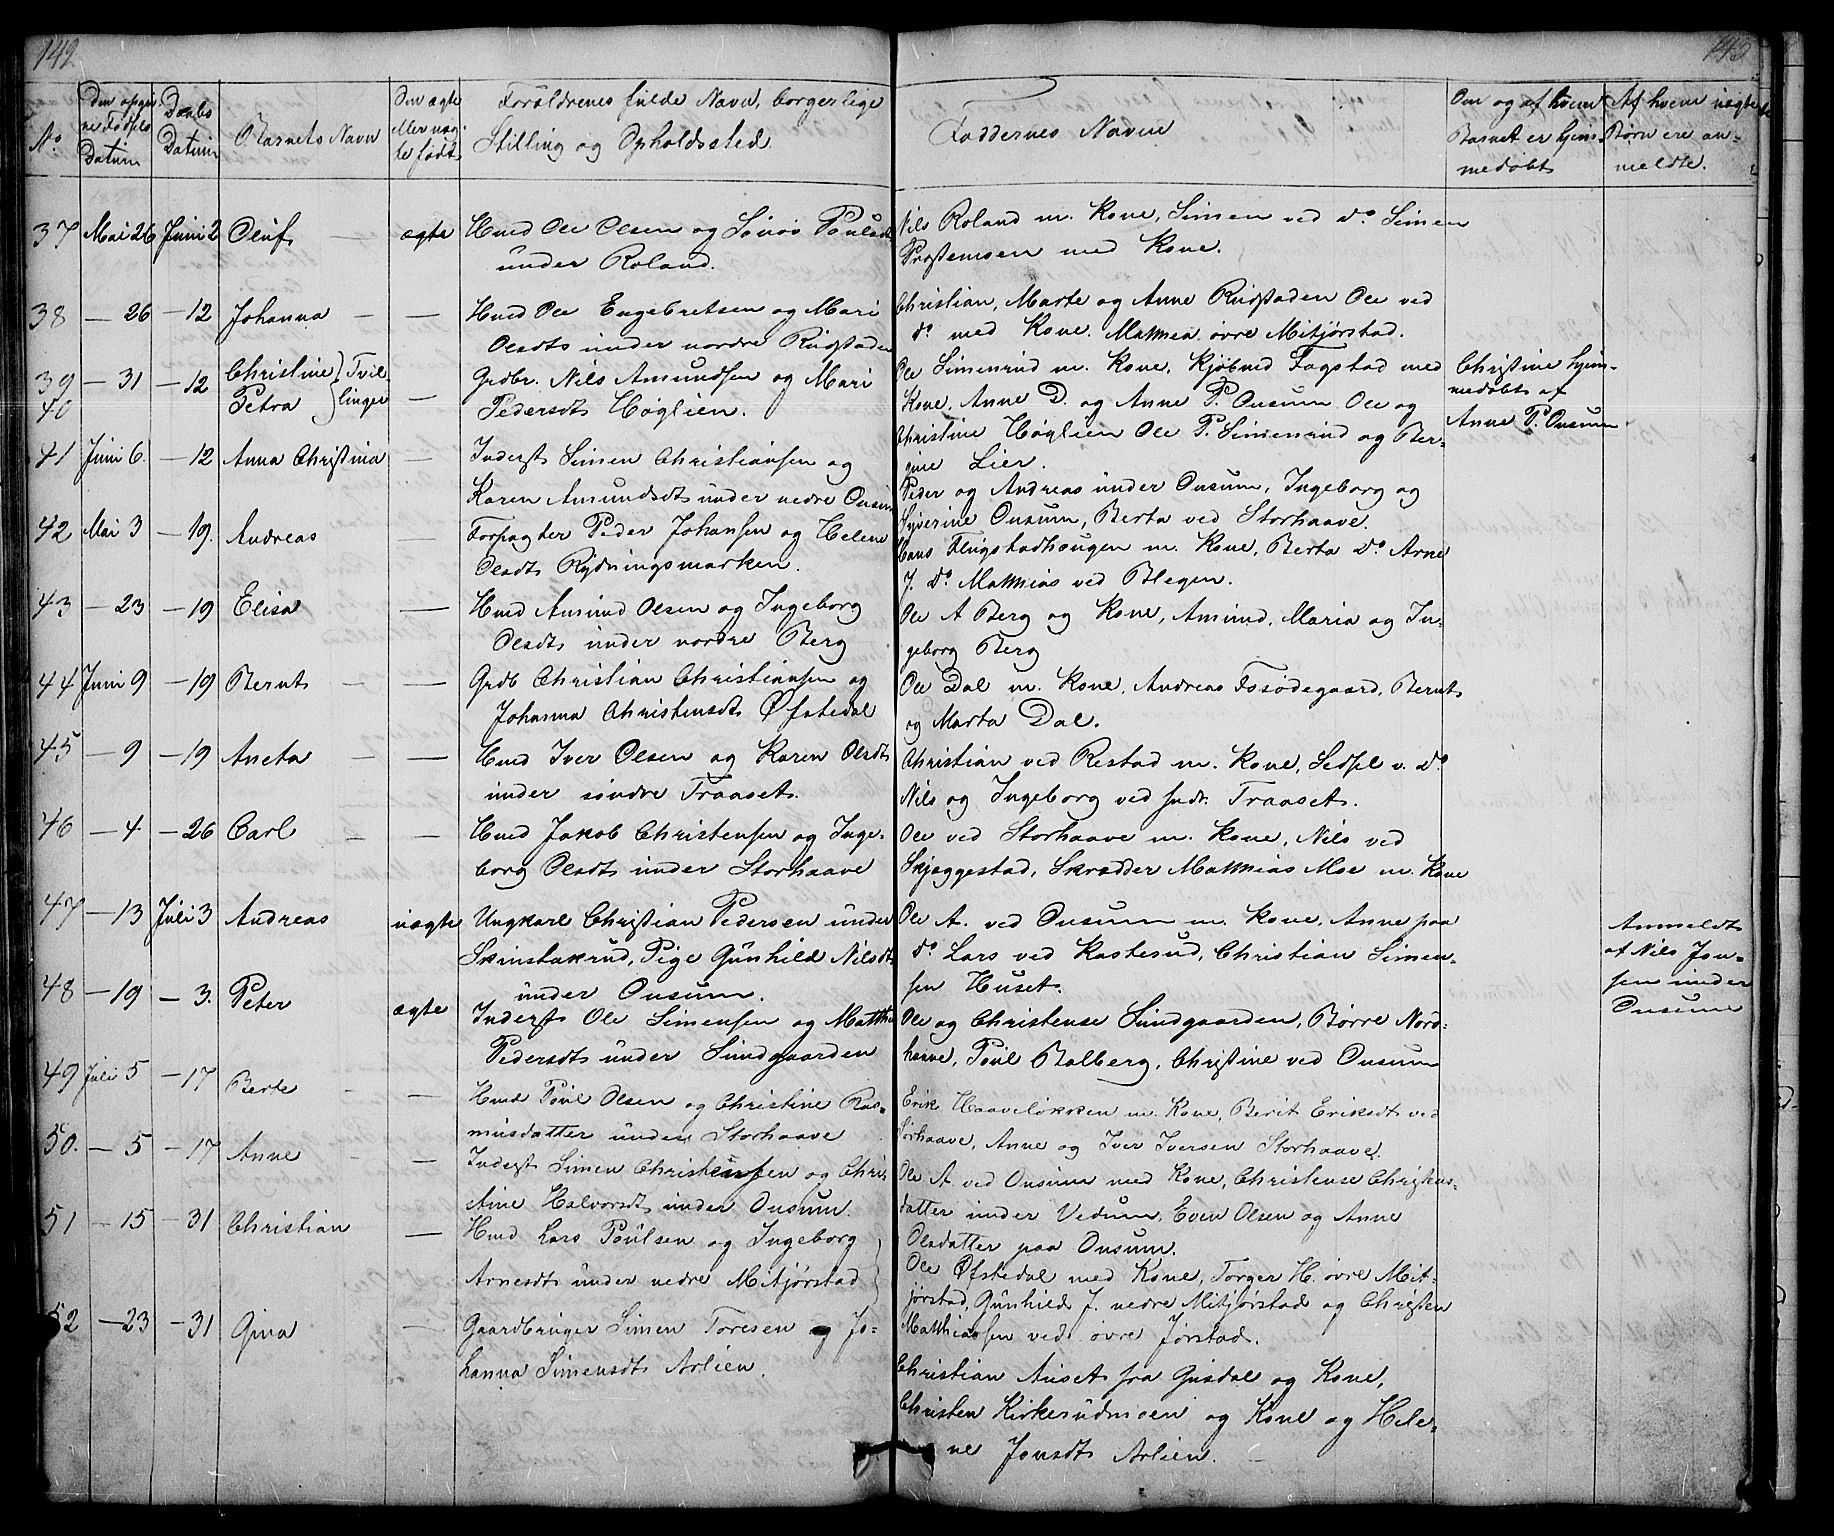 142
143
No
Den opgiv-
ne Fødsels
Datum
Daabs
Datum
Barnets Navn
Om ægte
eller uæg-
te født
Forældrenes fulde Navn, borgerlige
Stilling og Opholdssted.
Faddernes Navne
Om og af hvem
Barnet er hjem-
medøbt
Af hvem uægte
Børn ere an-
meldte.
37 Mai 26 Juni 2 Oluf — ægte Hmd Ole Olsen og Pouls
under Roland.
Nils Roland m. Kone, Simen ved do Simen
med Kone.
38 — 26 — 12 Johanna — — Hmd Ole Engebretsen og Mari
Olsdt under nordre Rudstaden
Christian, Marte og Anne Rudstaden Ole ved
do med Kone, Mathea øvre Mitjørstad.
39 — 31 — 12 Christine } Tvil-
40 Petra } linger —
Grdbr. Nils Amundsen og Mari
Pedersdt Høglien.
Ole Simenrud m. Kone, Kjøbmd Fagstad med
Kone, Anne D. og Anne P. Onsum Ole og
Christine Høglien Ole P. Simenrud og Ber-
gine Lier.
Christine hjem-
medøbt af
Anne P. Onsum
41 Juni 6. — 12 Anna Christina — Inderst Simen Christiansen og
Karen Amundsdt under nedre Onsum
Peder og Andreas under Onsum, Ingeborg og
Syverine Onsum, Berta ved Storhaave.
42 Mai 3 — 19. Andreas — Forpagter Peder Johansen og Helene
Olsdt Rydningsmarken.
Hans Flugstadhaugen m. Kone, Berta do Arne
J. do Matthias ved Blegen.
43 — 23 — 19 Elisa — Hmd Amund Olsen og Ingeborg
Olsdt under nordre Berg
Ole A Berg og Kone, Amund, Maria og In-
geborg Berg
44 Juni 9 — 19 Bernt — — Grdb Christian Christiansen og
Johanna Christensdt Øfstedal
Ole Dal m. Kone, Andreas Fosødegaard, Bernt
og Marta Dal.
45 — 9 — 19 Aneta — — Hmd Iver Olsen og Karen Olsdt
under søndre Traaset.
Christian ved Restad m. Kone, Sedsel v. do
Nils og Ingeborg ved sndr. Traaset.
46 — 4 — 26 Carl — — Hmd Jakob Christensen og Inge-
borg Olsdt under Storhaave
Ole ved Storhaave m. Kone, Nils ved
Skjæggestad, Skrædder Matthias Moe m. Kone
47 — 13 Juli 3 Andreas uægte Ungkarl Christian Pedersen under
Skinstakrud, Pige Gunhild Nilsdt
under Onsum.
Ole A. ved Onsum m. Kone, Anne paa
do Lars ved Kasterud, Christian Simen-
sen Huset.
Anmeldt
af Nils Jon-
sen under
Onsum
48 — 19 — 3. Peter ægte Inderst Ole Simensen og Mattha
Pedersdt under Sundgaarden
Ole og Christense Sundgaarden, Børre Nord-
haave, Poul Balberg, Christine ved Onsum
49 Juli 5 — 17 Berte — — Hmd Poul Olsen og Christine Ras-
musdatter under Storhaave
Erik Haaveløkken m. Kone, Berit Eriksdt ved
Sørhaave, Anne og Iver Iversen Storhaave.
50. — 5 — 17 Anne — — Inderst Simen Christensen og Chri-
stine Halvorsdt under Onsum.
Ole A. ved Onsum med Kone, Christense Christens-
datter under Vedum, Even Olsen og Anne
Olsdatter paa Onsum.
51 — 15 — 31 Christian — Hmd Lars Poulsen og Ingeborg
Arnesdt under nedre Mitjørstad
Ole Øfstedal med Kone, Torger H. øvre Mit-
jørstad, Gunhild J. nedre Mitjørstad og Christen
Matthiassen ved øvre Jørstad.
52 — 23 — 31 Gina — Gaardbruger Simen Toresen og Jo-
hanna Simensdt Aslien.
Christian Auset fra Gusdal og Kone,
Christen Kirkerudmoen og Kone og Hele-
ne Jonsdt Aslien.